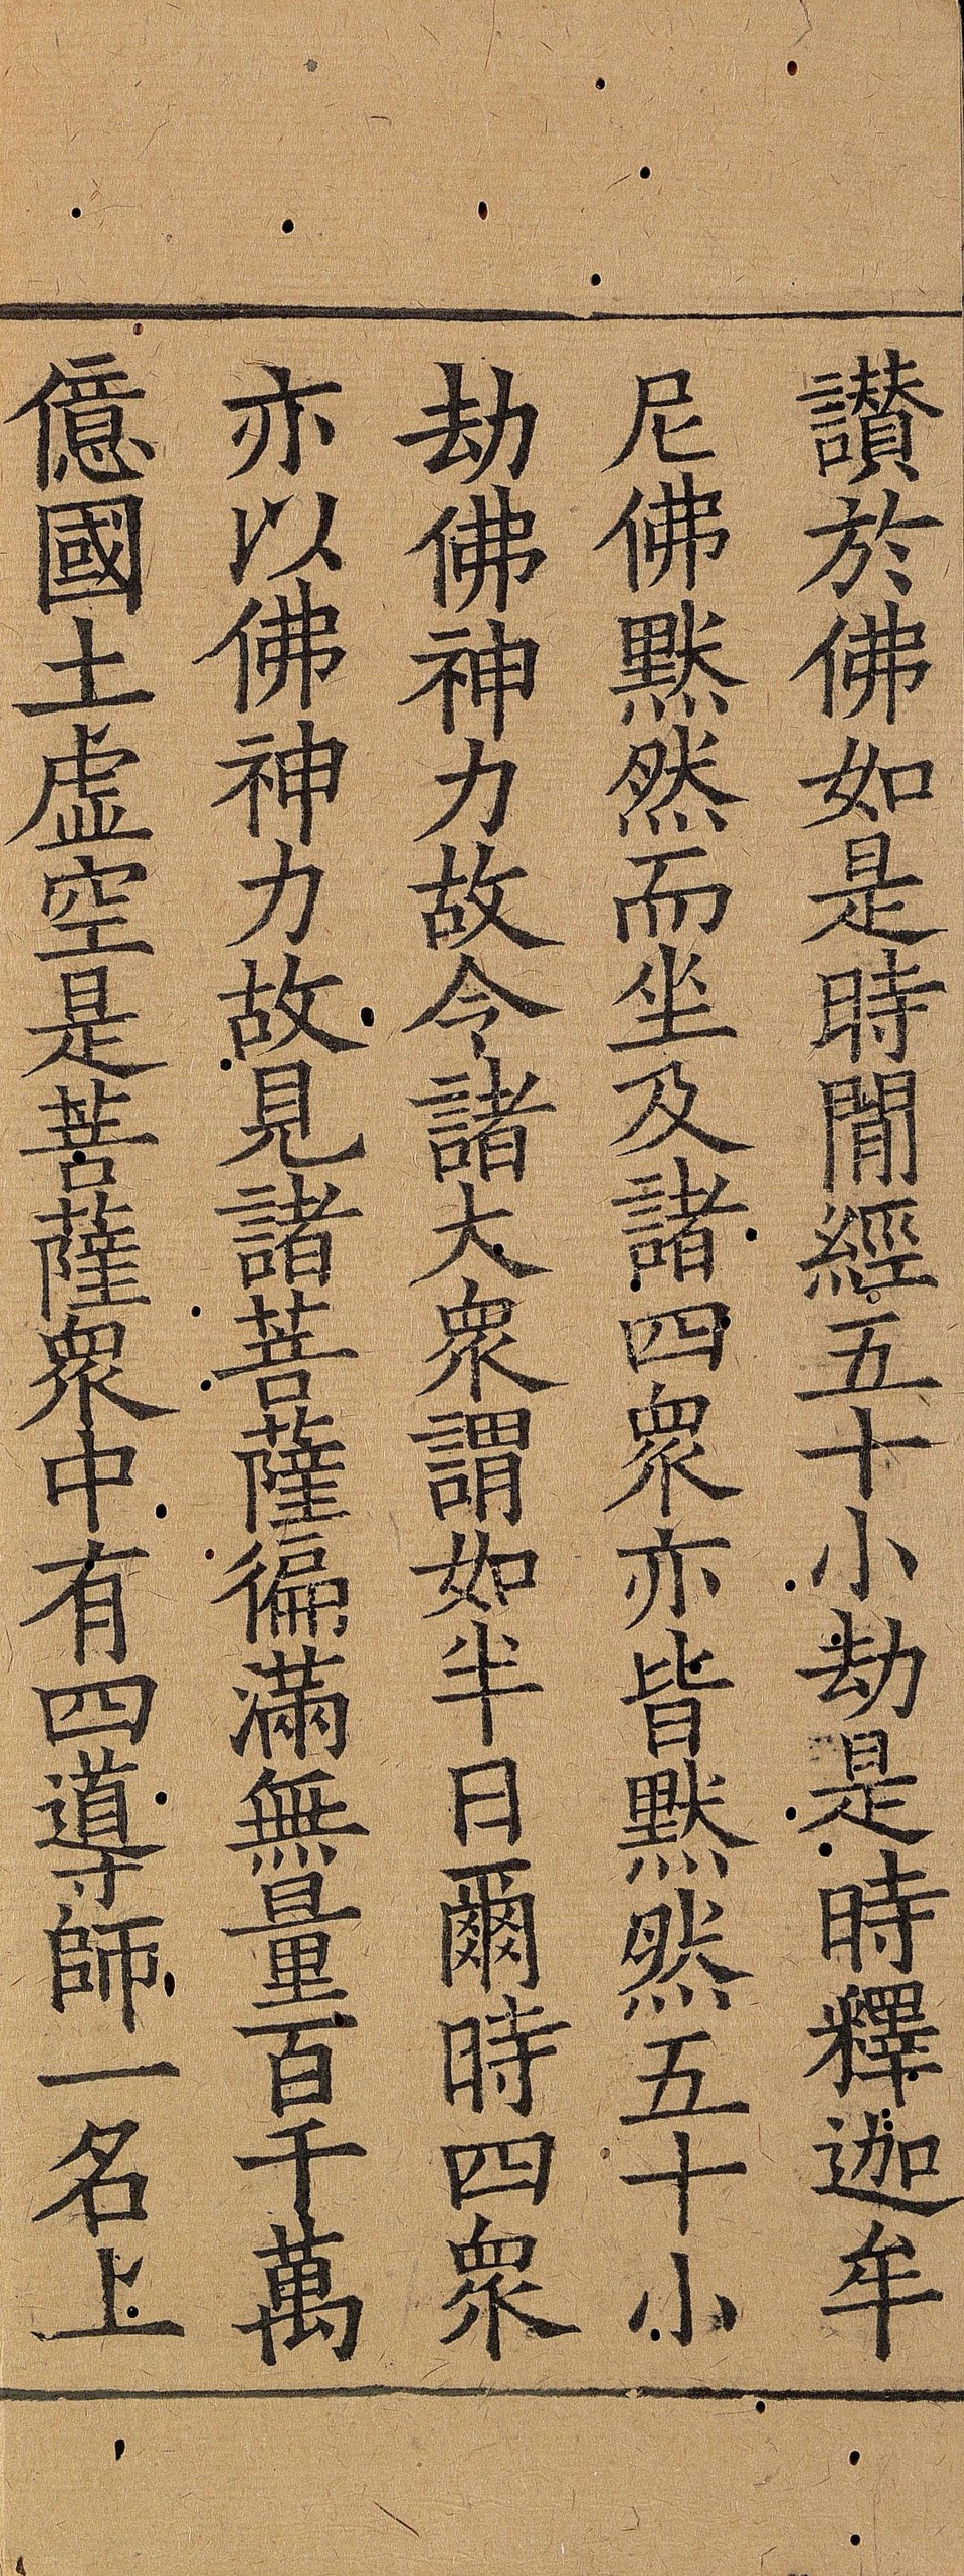 讃於佛如是時閒經五十小劫是時釋迦牟
尼佛黙然而坐及諸四衆亦皆黙然五十小
劫佛神力故令諸大衆謂如半日爾時四衆
亦以佛神力故見諸菩薩徧滿無量百千萬
億國土虛空是菩薩衆中有四導師一名上